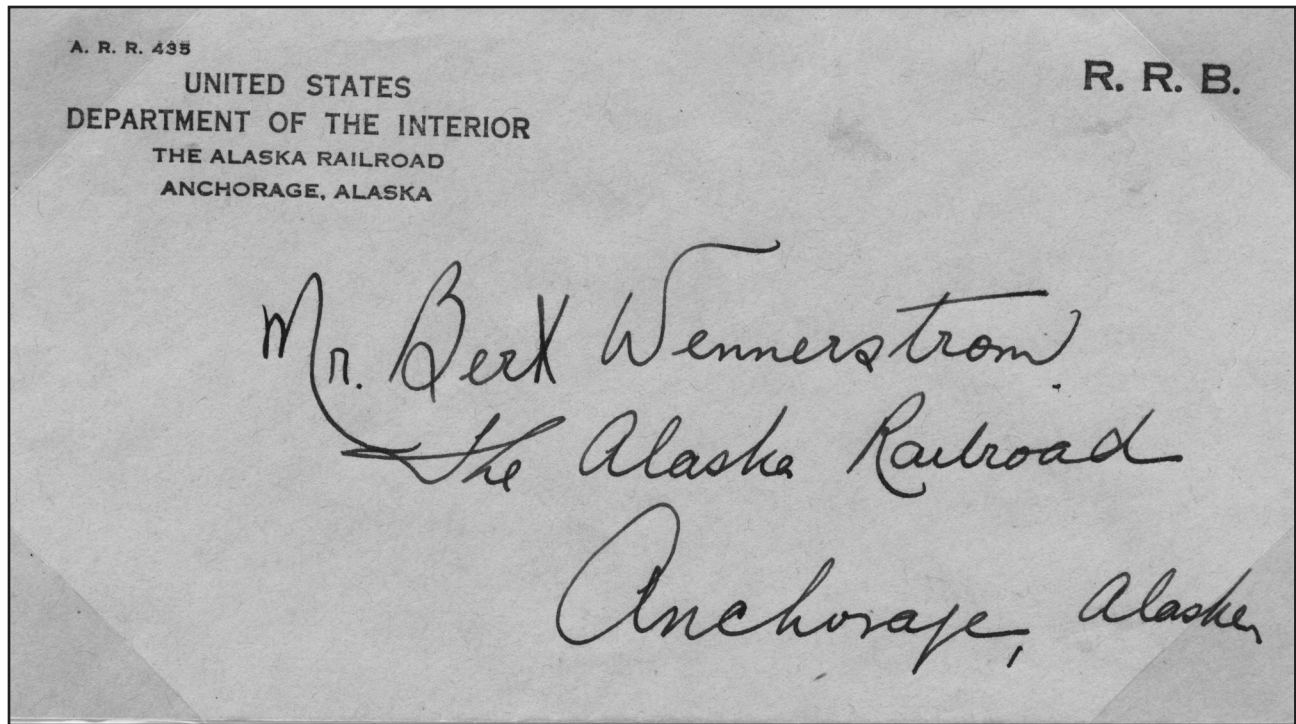 A. R. R. 435
R. R. B.
UNITED STATES
DEPARTMENT OF THE INTERIOR
THE ALASKA RAILROAD
ANCHORAGE, ALASKA
Mr. Bert Wennerstrom
The Alaska Railroad
Anchorage, Alaska